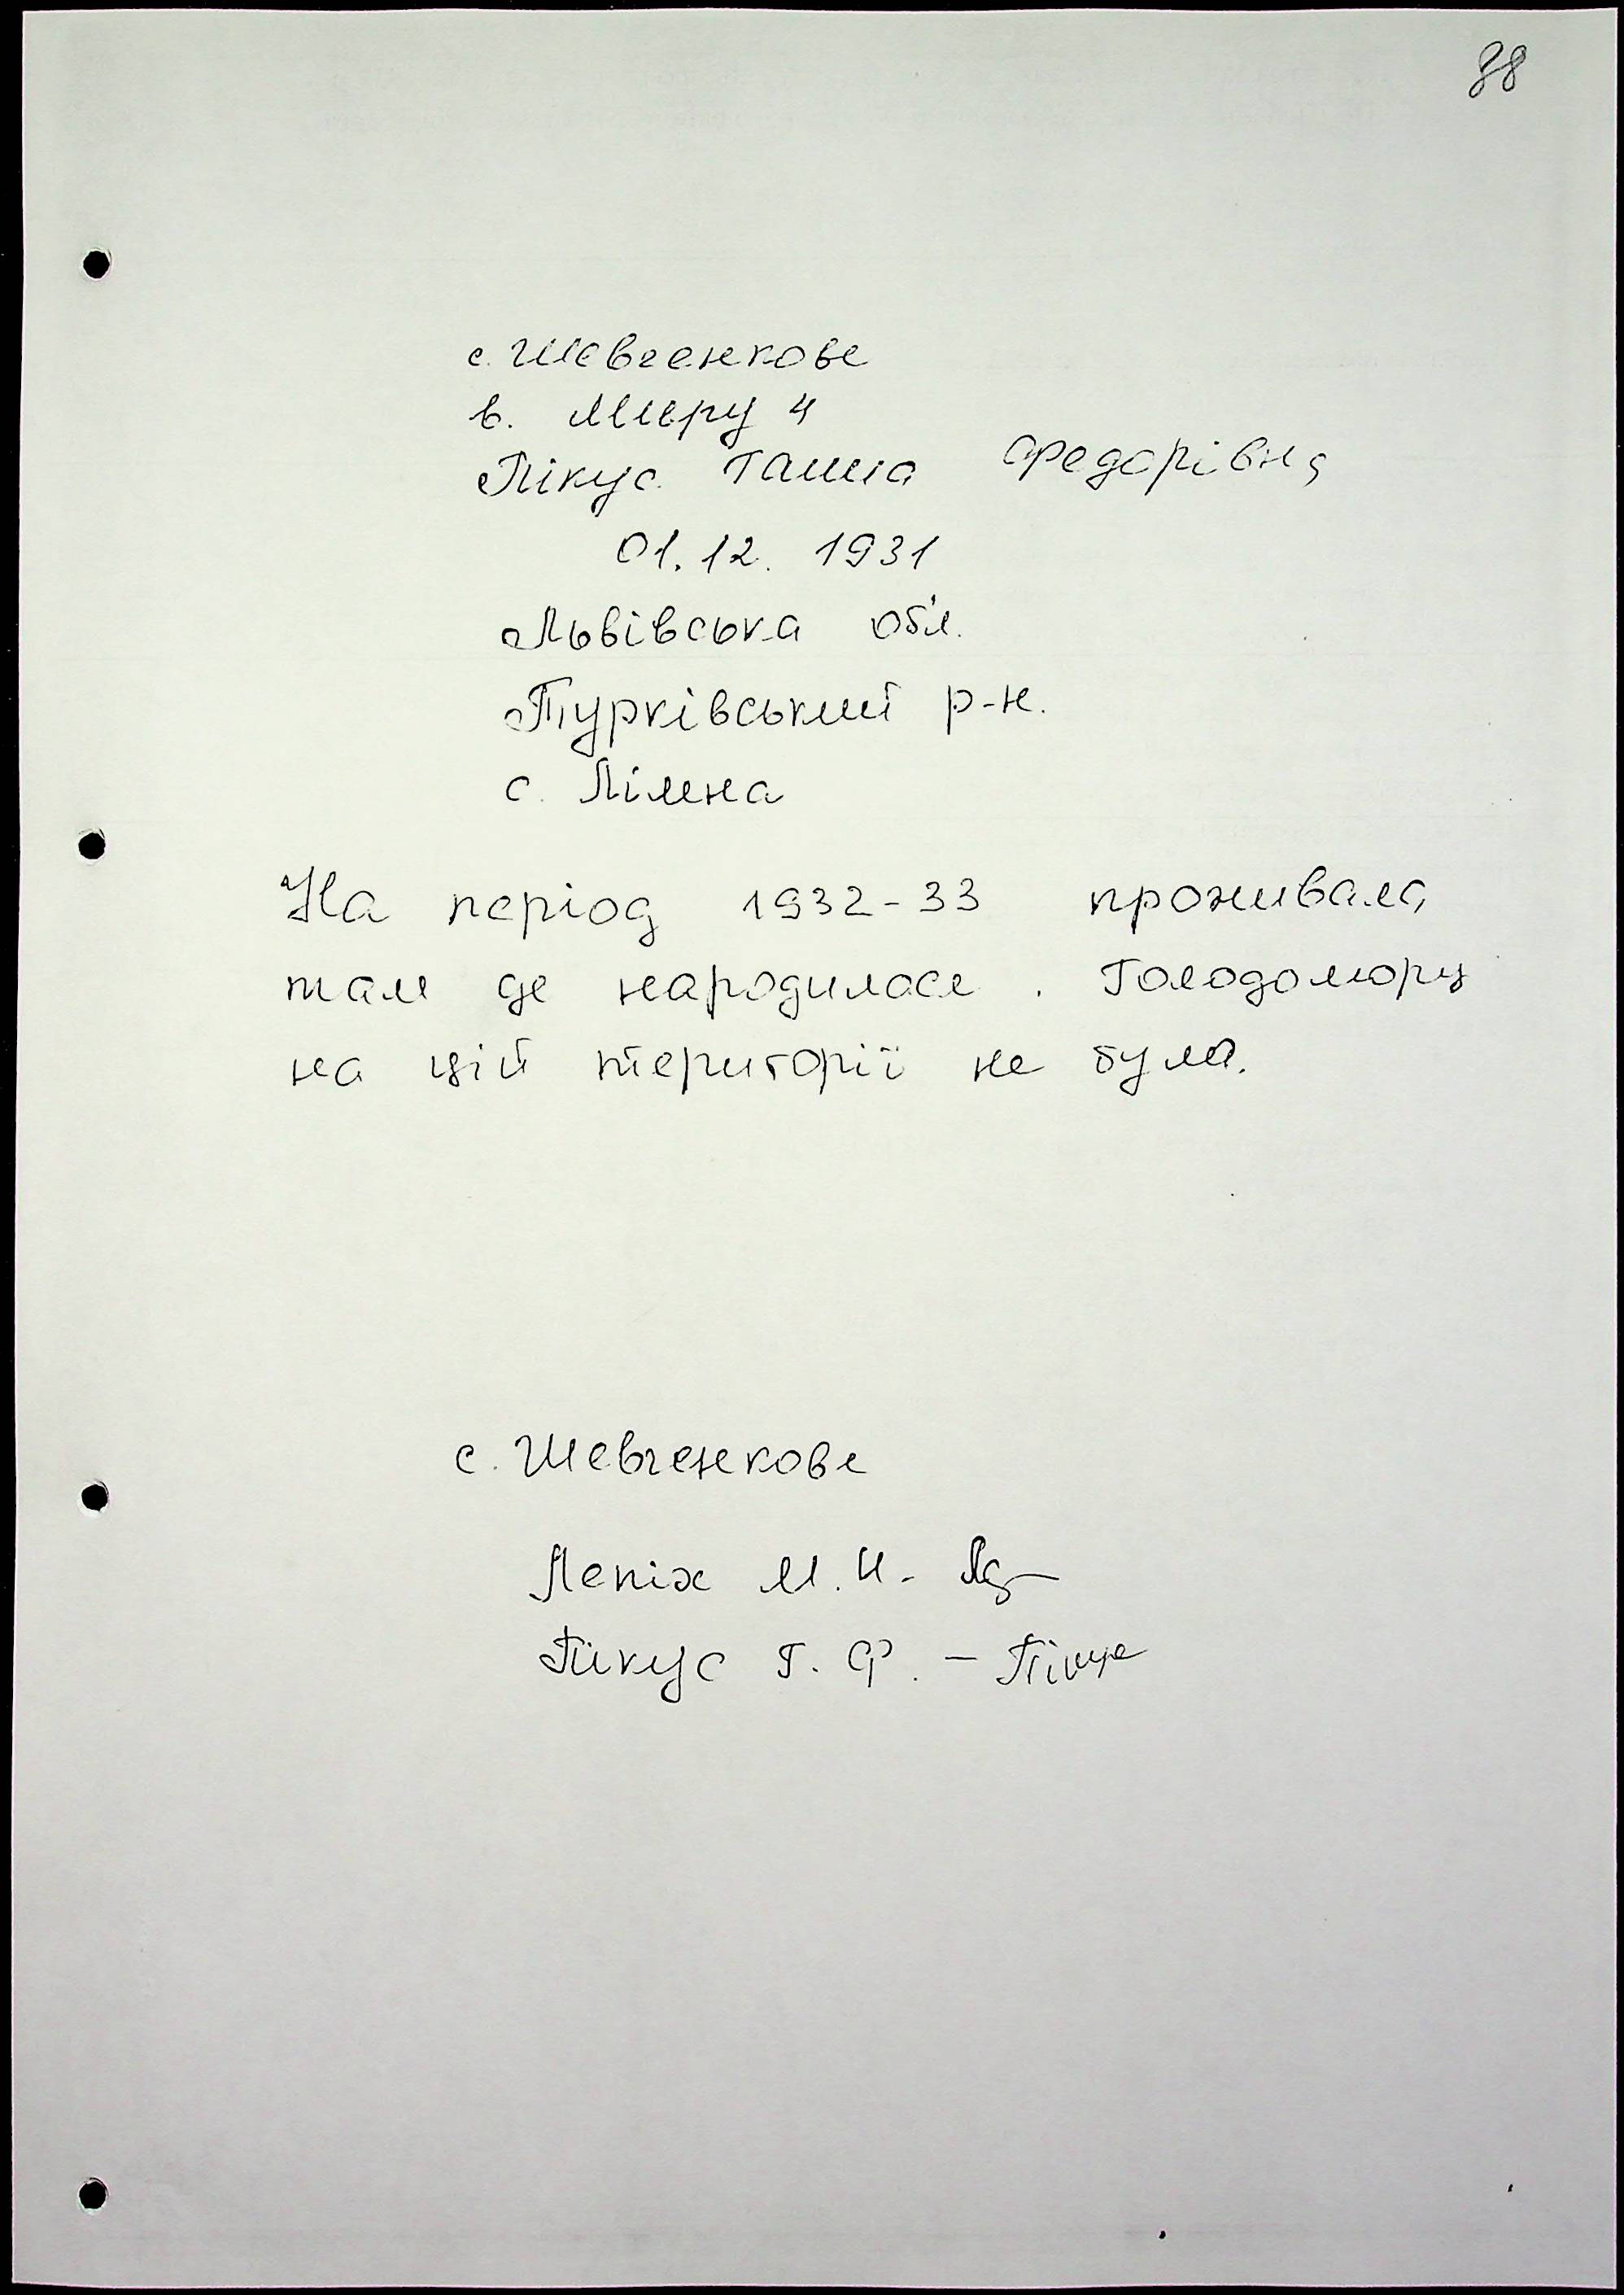 38
с. Шевченкове
в. Миру 4
Пікус Ганна Федорівна
01.12. 1931
Львівська обл.
Турківський р-н.
с. Лімна
На період 1932-33 проживала
там де народилася. Голодомору
на цій території не було.
с. Шевченкове
Лепіх М.И.
Пікус Г.Ф. – Пікус